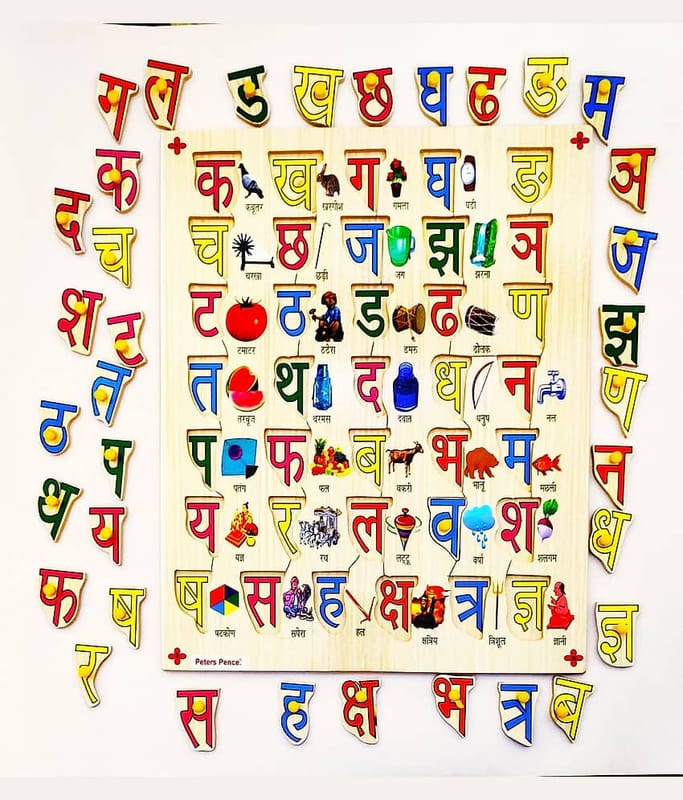 ग ल ड ख छ घ ढ ङ म
क ञ
द च ज
श ट झ
त ण
ठ प न
थ य ध
फ ष ज्ञ
र
स ह क्ष भ त्र ब
क ख ग घ ङ
कबूतर खरगोश गमला घडी
च छ ज झ ञ
चरखा छड़ी जग झरना
ट ठ ड ढ ण
टमाटर ठठेरा डमरू ढोलक
त थ द ध न
तरबूज थरमस दवात धनुष नल
प फ ब भ म
पतंग फल बकरी भालू मछली
य र ल व श
यज्ञ रथ लट्टू वर्षा शलगम
ष स ह क्ष त्र ज्ञ
षटकोण सपेरा हल क्षत्रिय त्रिशूल ज्ञानी
Peters Pence